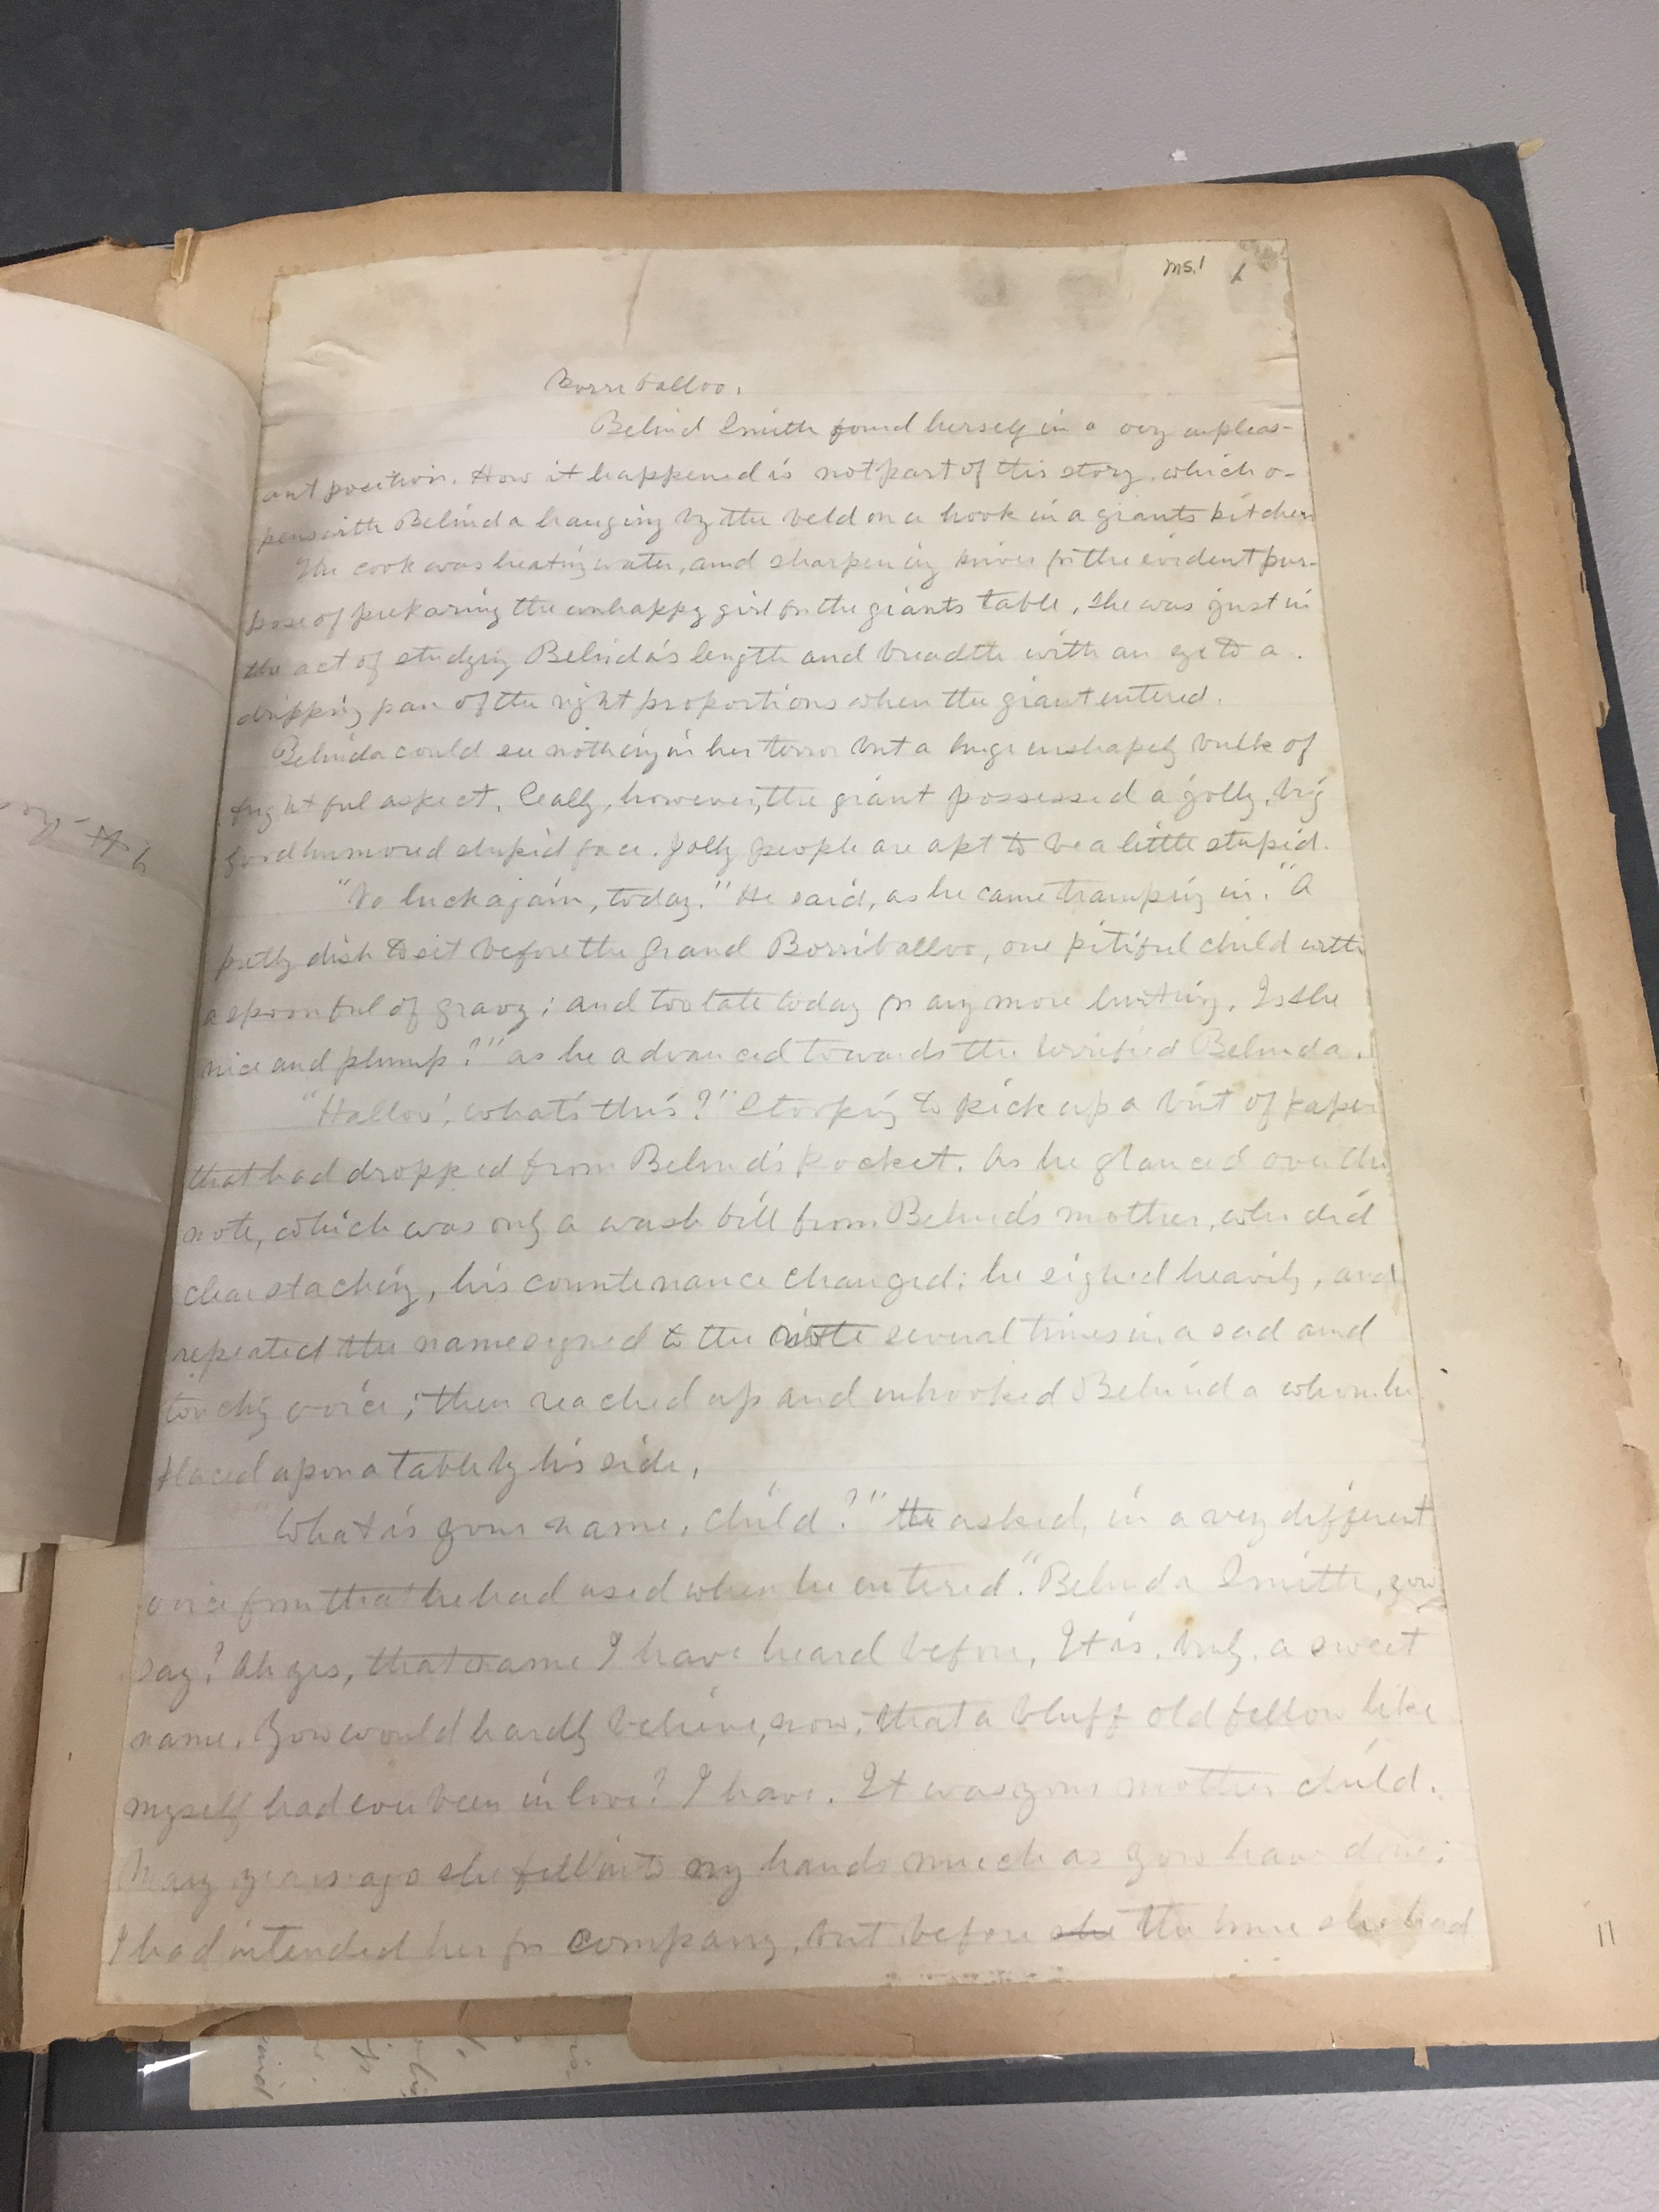 ms.1 1
Borriballoo.
Belind Smith found herself in a very unpleas-
ant position. How it happened is not part of this story, which o-
pens with Belinda hanging by the belt on a hook in a giants kitchen
The cook was heating water, and sharpening knives for the evident pur-
pose of preparing the unhappy girl for the giants table, She was just in
the act of studying Belinda's length and breadth with an eye to a
dripping pan of the right proportions when the giant entered.
Belinda could see nothing in her terror but a huge unshapely bulk of
frightful aspect. Really, however, the giant possessed a jolly, big
good humored stupid face. Jolly people are apt to be a little stupid.
"No luck again, today." He said, as he came tramping in. "A
pretty dish to set before the grand Borriballoo, one pitiful child with
a spoonful of gravy; and too late today for any more hunting. Is she
nice and plump?" as he advanced towards the terrified Belinda.
"Halloo, what's this?" Stooping to pick up a bit of paper
that had dropped from Belind's pocket. As he glanced over the
note, which was only a wash bill from Belind's mother, who did
clear staching, his countenance changed; he sighed heavily, and
repeated the name signed to the note several times in a sad and
touchig voice; then reached up and unhooked Belinda whom he
placed upon a table by his side,
"What is your name, child?" He asked, in a very different
voice from that he had used when he entered. "Belinda Smith, you
say? Ah yes, that name I have heard before, It is, truly, a sweet
name. You would hardly believe, now, that a bluff old fellow like
myself had ever been in love? I have. It was your mother child.
Many years ago she fell into my hands much as you have done;
I had intended her for company, but before she the time she had
11